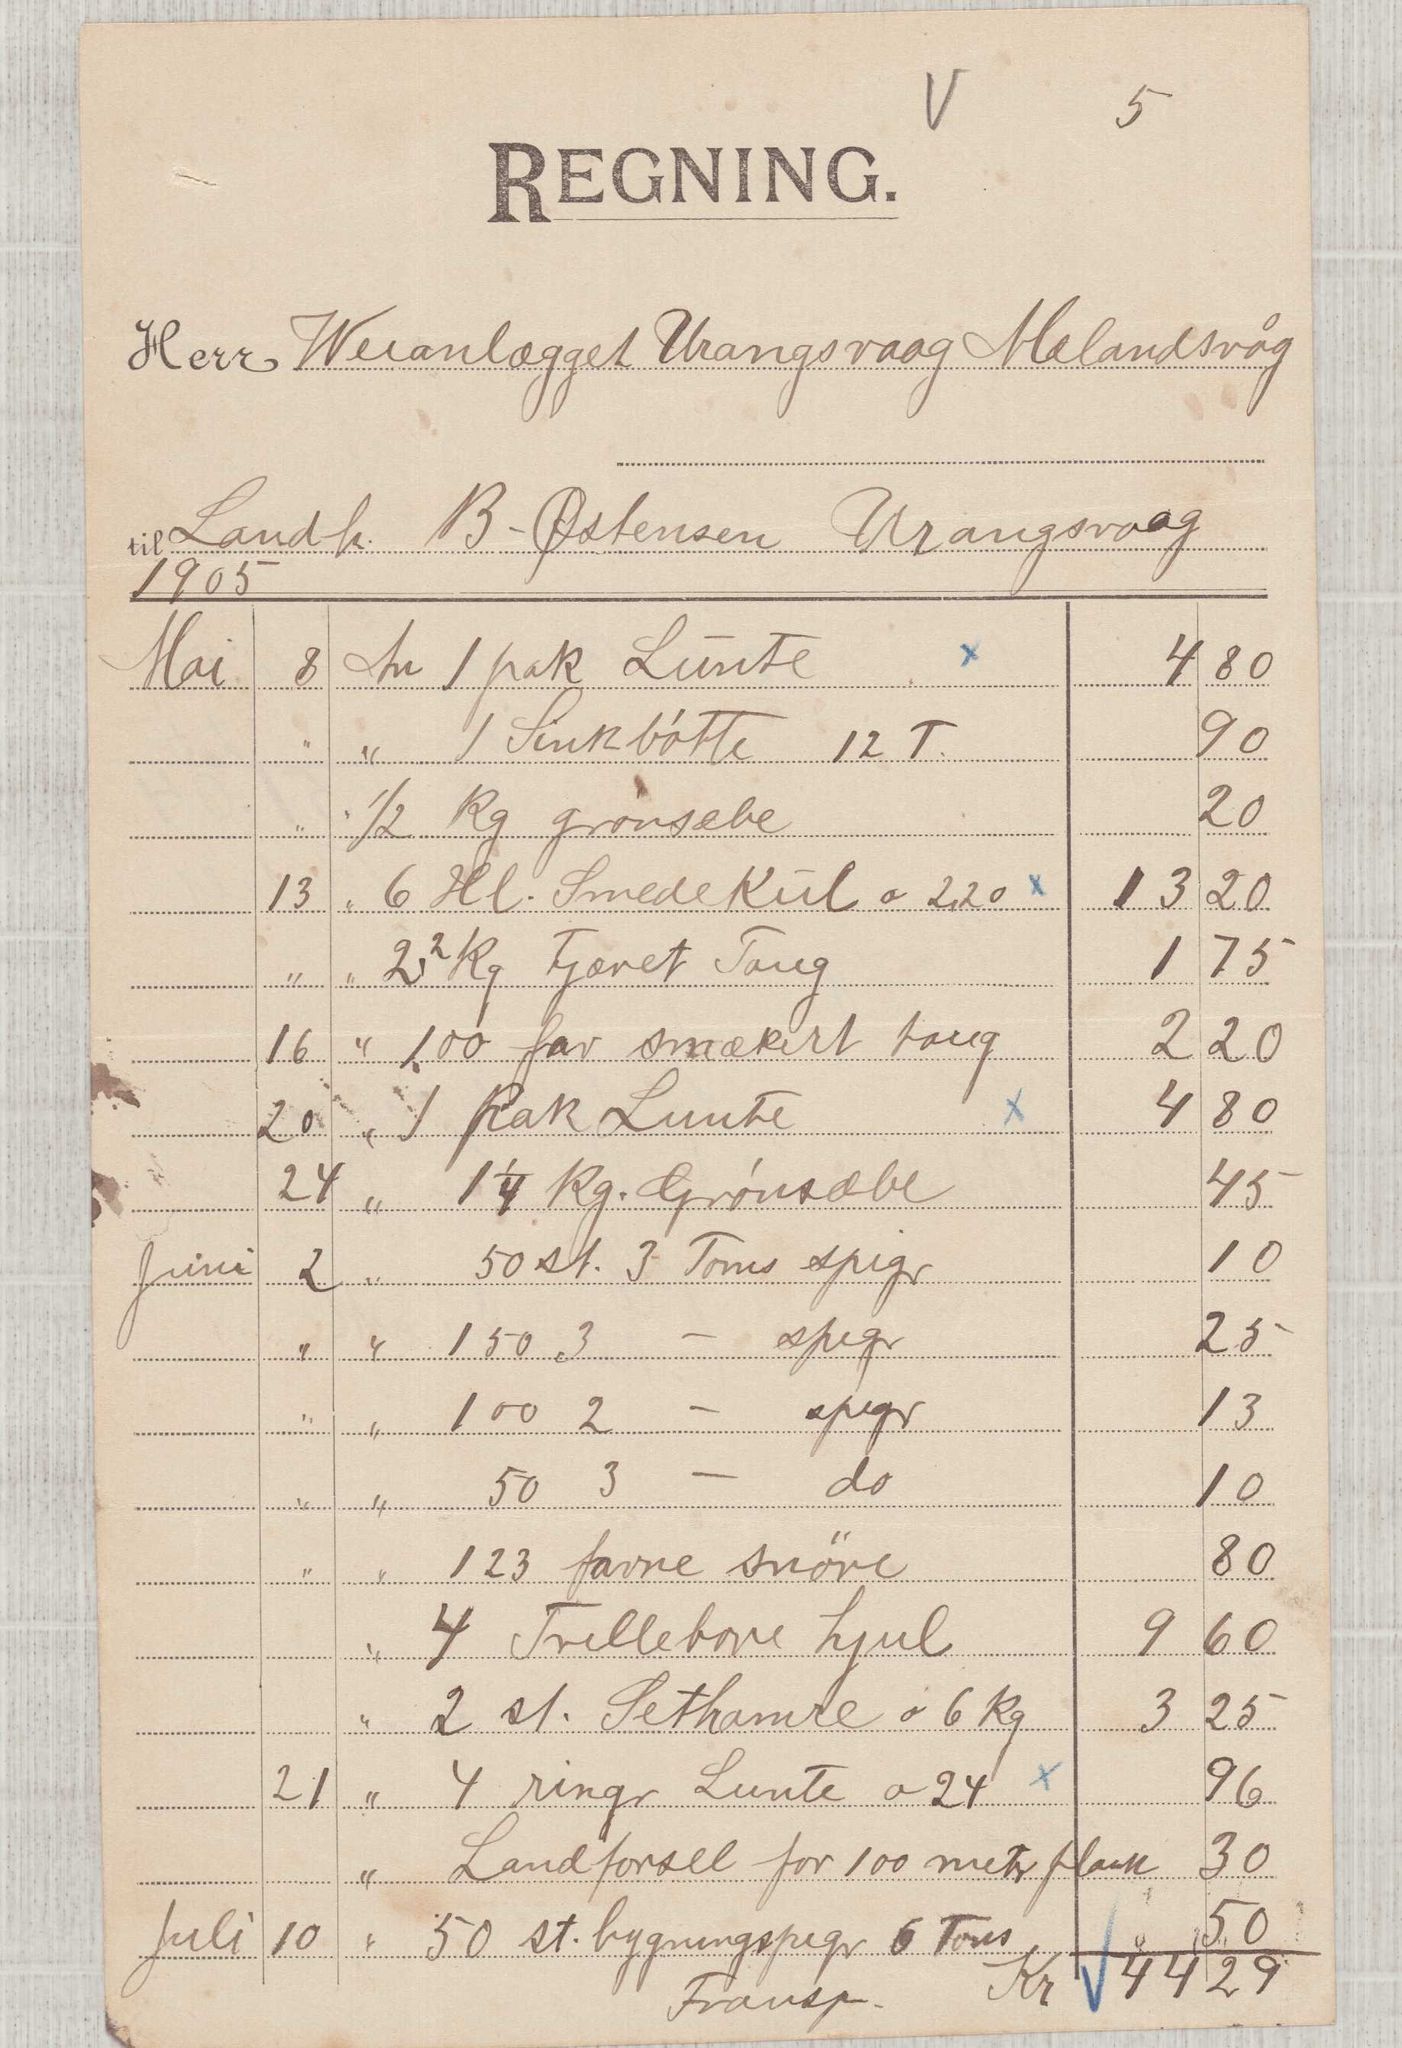 V 5
REGNING.
Herr Weianlægget Urangsvaag Mælandsvåg
til Landh. B- Østensen Urangsvaag
1905
Mai 8 An 1 pak Lunte x 4 80
" " 1 Sinkbøtte 12 T. 90
" " 1/2 Kg grønsæbe 20
13 " 6 Hl. Smedekul a 2,20 x 13 20
" " 2,2 Kg tjæret Taug 1 75
16 " 100 fav smækert taug 2 20
20 " 1 Pak Lunte x 4 80
24 " 1 1/4 Kg. Grønsæbe 45
Juni 2 " 50 st. 3 Toms spigr 10
" " 150 3 - spigr 25
" " 100 2 - spigr 13
" " 50 3 - do 10
" " 123 favne snöre 80
" 4 Trillebore hjul 9 60
" 2 st. Sethamre a 6 Kg 3 25
21 " 4 ringr Lunte a 24 x 96
" Landforsel for 100 metr plank 30
Juli 10 " 50 st. bygningspigr 6 Toms 50
Transp. Kr 44 29